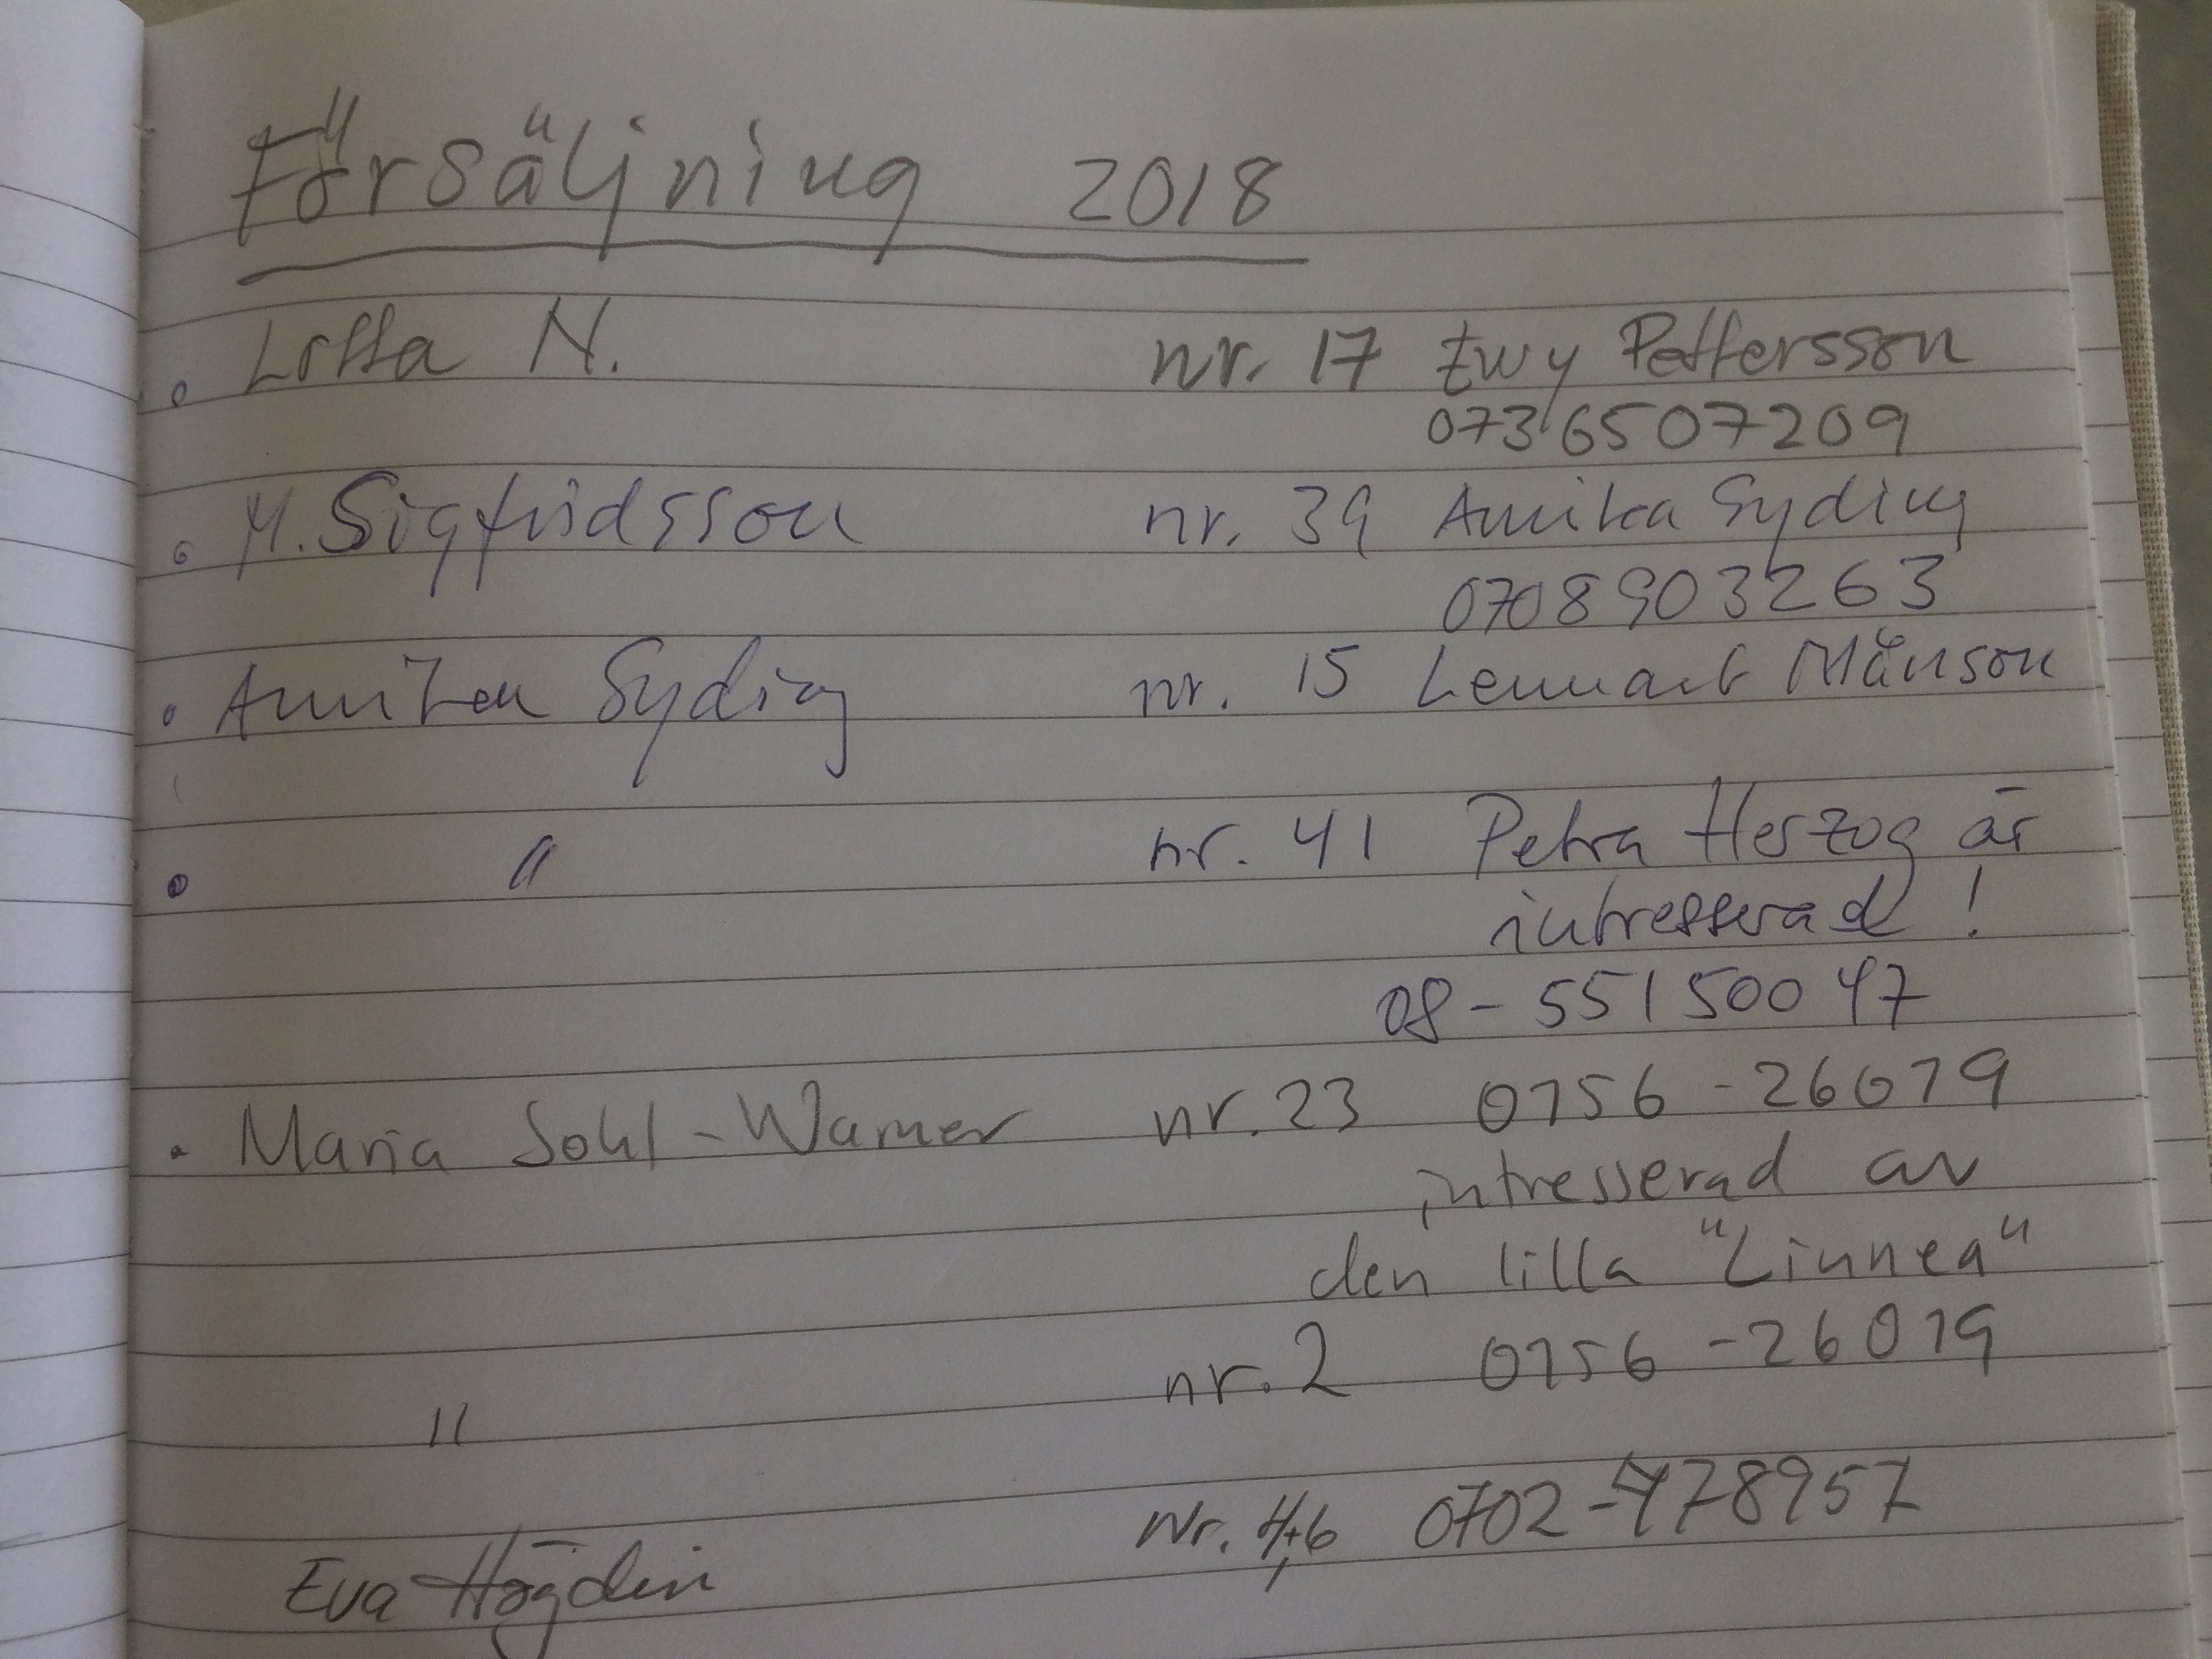 Försäljning 2018
Lotta N. nr. 17 Ewy Pettersson
0736507209
M. Sigfridsson nr. 39 Annika Syding
0708903263
Annika Syding nr. 15 Lennart Månson
" nr. 41 Petra Herzog är
intresserad!
08-551 500 47
Maria Sohl-Warner nr. 23 0156-26019
intresserad av
den lilla "Linnea"
nr. 2 0156-26019
"
Nr. 4,6 0702-478957
Eva Högdin